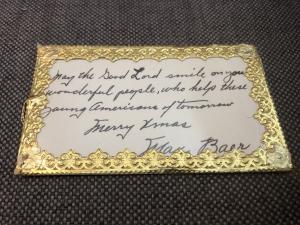 May the Good Lord smile on you
wonderful people, who help these
young Americans of tomorrow
Merry Xmas
Max Baer